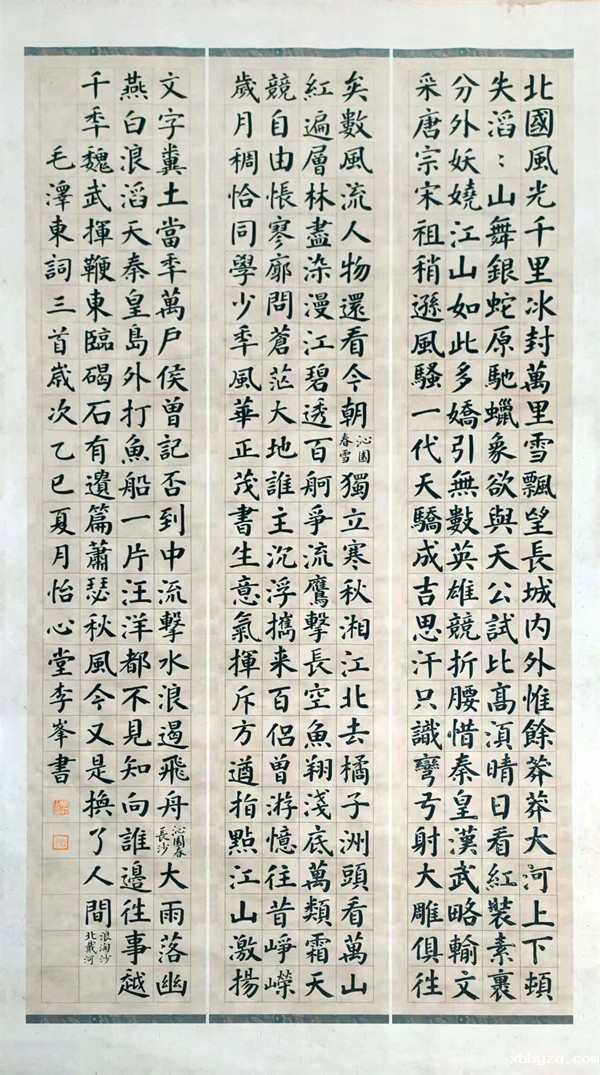 北國風光千里冰封萬里雪飄望長城內外惟餘莽莽大河上下頓
失滔：山舞銀蛇原馳蠟象欲與天公試比高湏晴日看紅裝素裹
分外妖嬈江山如此多嬌引無數英雄競折腰惜秦皇漢武略輸文
采唐宗宋祖稍遜風騷一代天驕成吉思汗只識彎弓射大雕俱往
矣數風流人物還看今朝沁園春雪獨立寒秋湘江北去橘子洲頭看萬山
紅遍層林盡染漫江碧透百舸爭流鷹擊長空魚翔淺底萬類霜天
競自由悵寥廓問蒼茫大地誰主沉浮攜来百侶曾游憶往昔崢嶸
歲月稠恰同學少秊風華正茂書生意氣揮斥方遒指點江山激揚
文字糞土當秊萬戶侯曾記否到中流擊水浪遏飛舟沁園春長沙大雨落幽
燕白浪滔天秦皇島外打魚船一片汪洋都不見知向誰邊往事越
千秊魏武揮鞭東臨碣石有遺篇蕭瑟秋風今又是換了人間浪淘沙北戴河
毛澤東詞三首歲次乙巳夏月怡心堂李峯書
xbbyzq.com